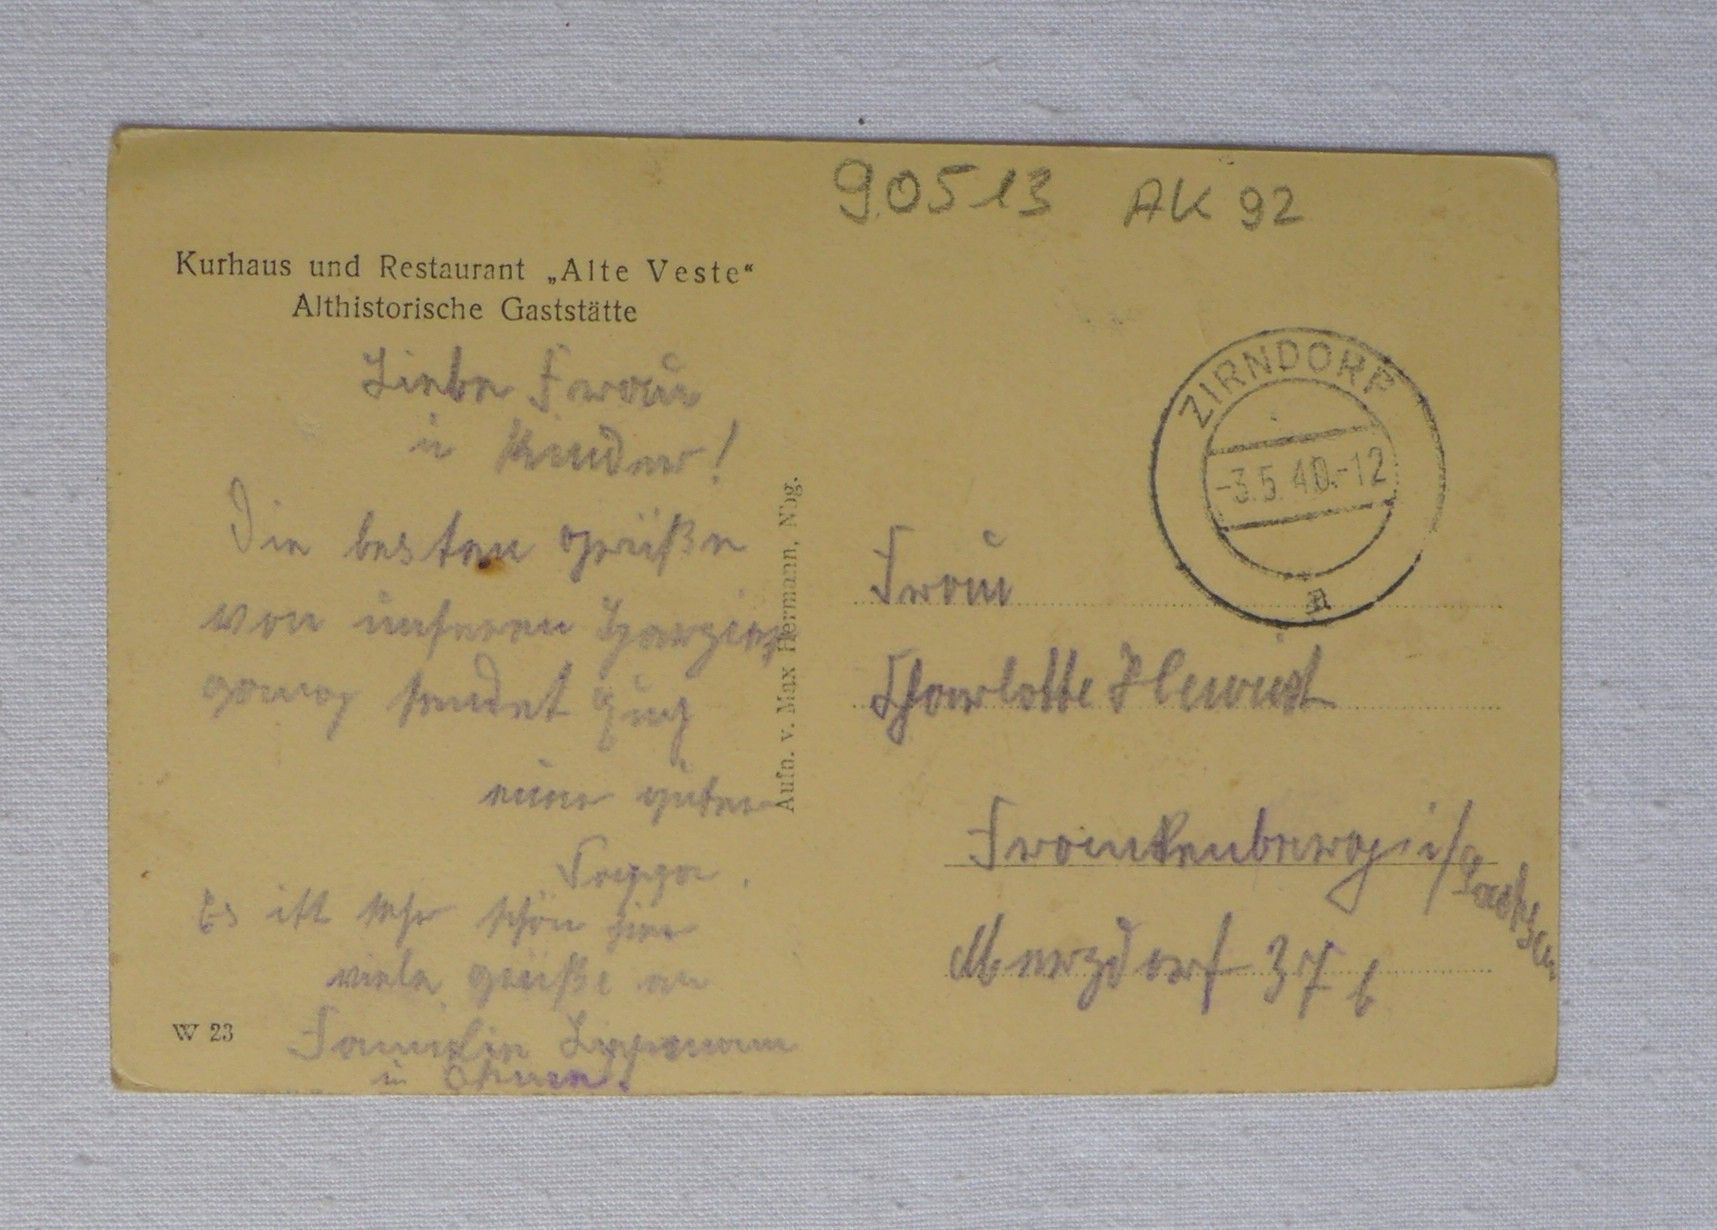 90513 AK 92
Kurhaus und Restaurant „Alte Veste“
Althistorische Gaststätte
Liebe Frau
u Kinder!
Die besten Grüße
von unseren Spazier
gang sendet Euch
euer guter
Pappa.
Es ist sehr schön hier
viele Grüße an
Familie
u
W 23
Aufn. v. Max Hermann, Nbg.
ZIRNDORF
-3.5.40.-12
a
Frau
Charlotte
Frankenberg i/Sachsen
Merzdorf 37 b